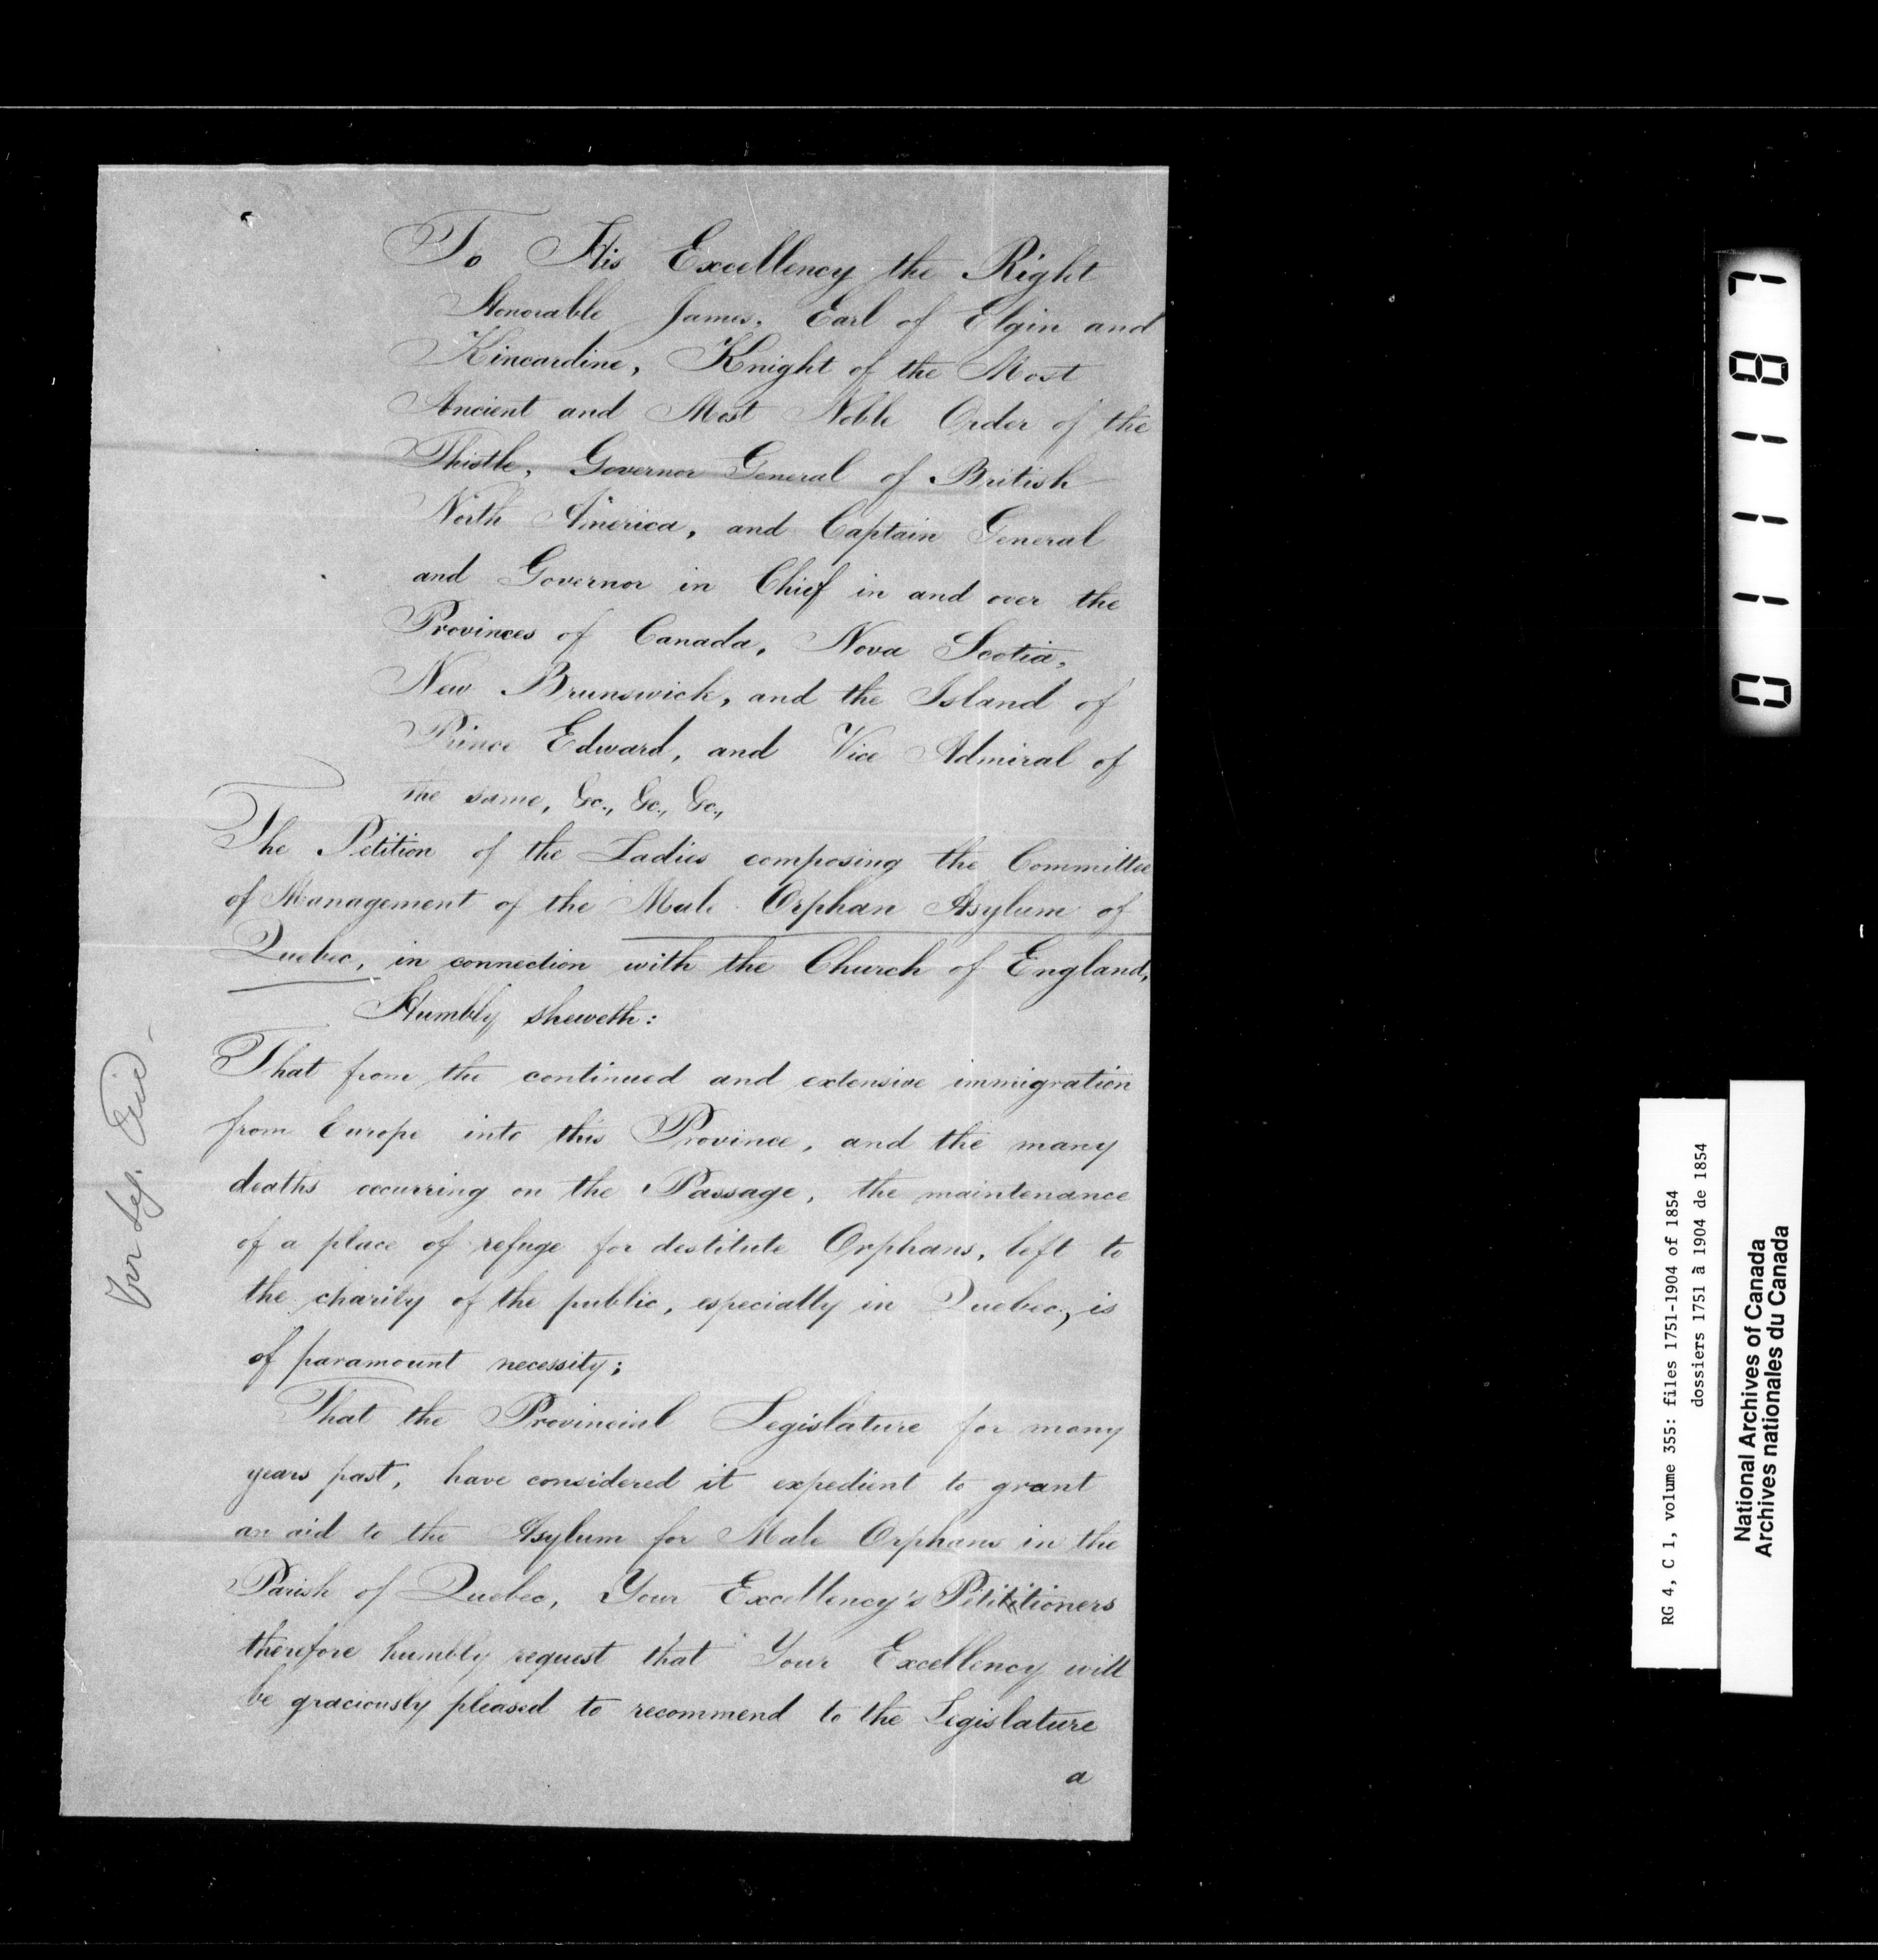 To His Excellency the Right
Honorable James, Earl of Elgin and
Kincardine, Knight of the Most
Ancient and Most Noble Order of the
Thistle, Governor General of British
North America, and Captain General
and Governor in Chief in and over the
Provinces of Canada, Nova Scotia,
New Brunswick, and the Island of
Prince Edward, and Vice Admiral of
the same, &c., &c., &c.,
The Petition of the Ladies composing the Committee
of Management of the Male Orphan Asylum of
Quebec, in connection with the Church of England,
Humbly sheweth:
That from the continued and extensive immigration
from Europe into this Province, and the many
deaths occurring on the Passage, the maintenance
of a place of refuge for destitute Orphans, left to
the charity of the public, especially in Quebec, is
of paramount necessity;
That the Provincial Legislature for many
years past, have considered it expedient to grant
an aid to the Asylum for Male Orphans in the
Parish of Quebec, Your Excellency's Petititioners
therefore humbly request that Your Excellency will
be graciously pleased to recommend to the Legislature
a
For Leg. Aid
011187
RG 4, C 1, volume 355: files 1751-1904 of 1854
dossiers 1751 à 1904 de 1854
National Archives of Canada
Archives nationales du Canada